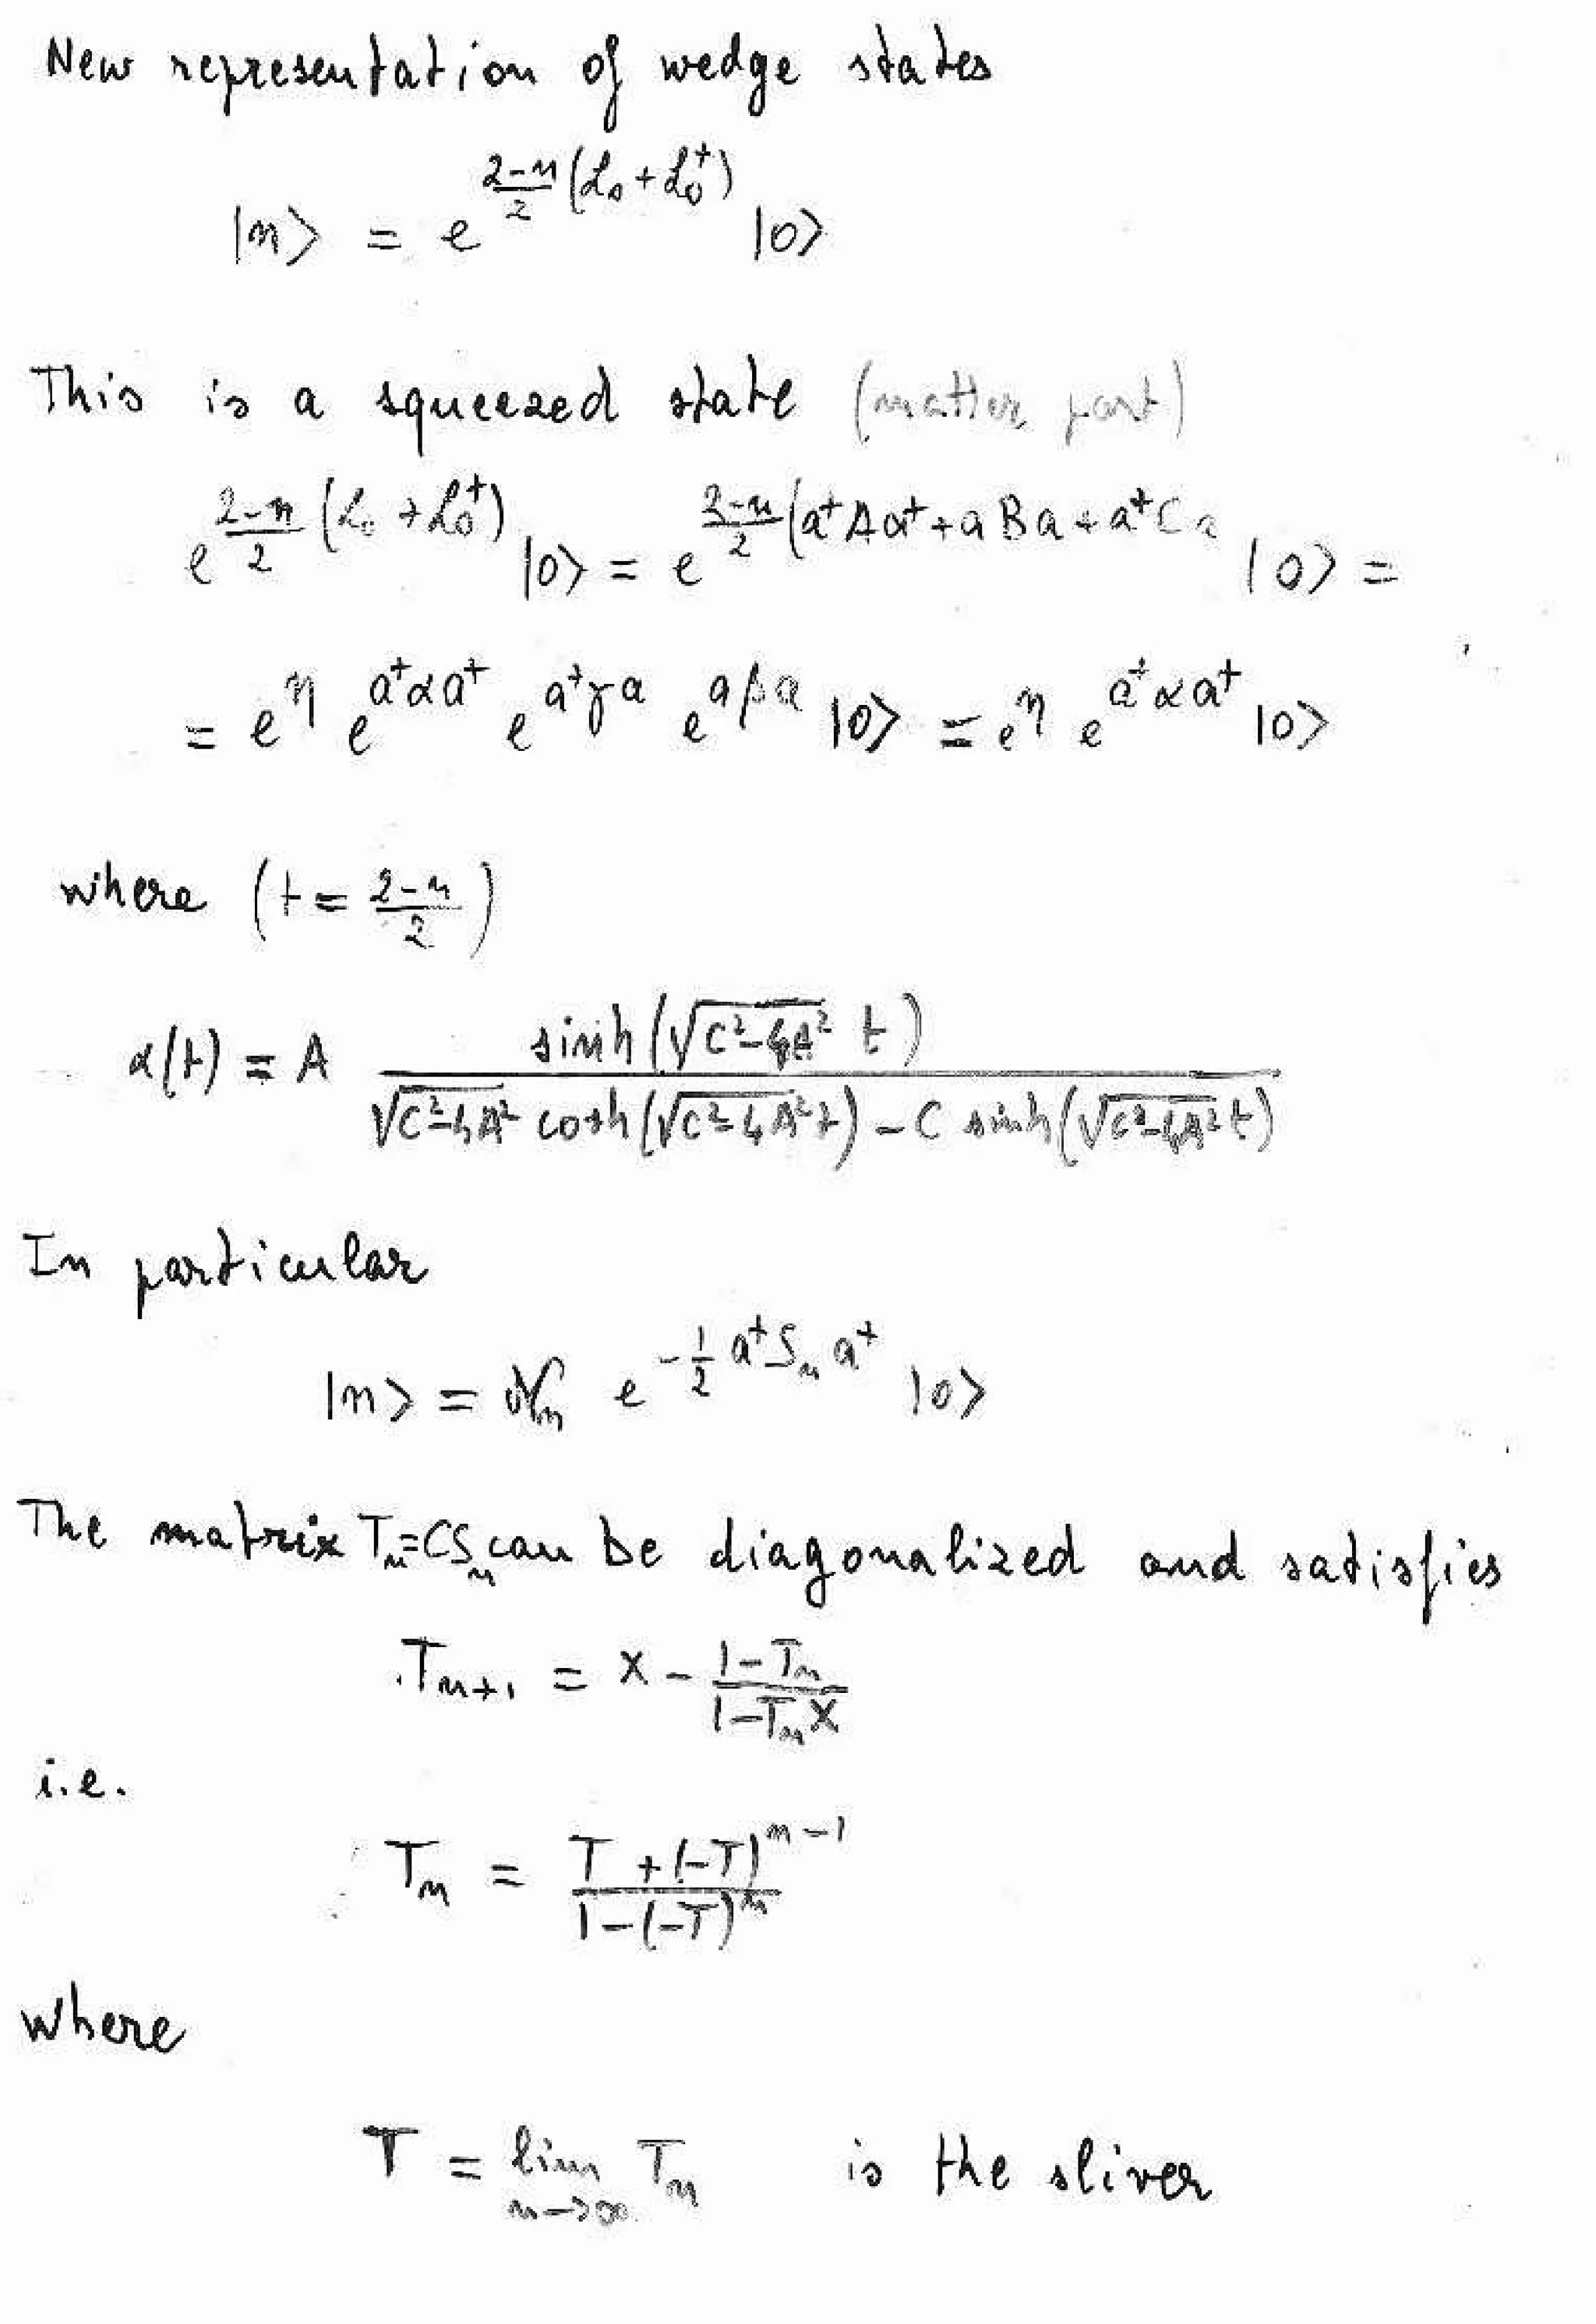 New representation of wedge states
|n> = e^{\frac{2-n}{2}(ℒ₀ + ℒ₀^†)} |0>
This is a squeezed state (matter part)
e^{\frac{2-n}{2}(ℒ₀ + ℒ₀^†)} |0> = e^{\frac{2-n}{2}(a^† A a^† + a B a + a^† C a} |0> =
= e^η e^{a^† α a^†} e^{a^† γ a} e^{a β a} |0> = e^η e^{a^† α a^†} |0>
where (t = \frac{2-n}{2})
α(t) = A \frac{sinh(\sqrt{C²-4A²} t)}{\sqrt{C²-4A²} cosh(\sqrt{C²-4A²} t) - C sinh(\sqrt{C²-4A²} t)}
In particular
|n> = 𝒩_n e^{-\frac{1}{2} a^† S_n a^†} |0>
The matrix T_n=CS_n can be diagonalized and satisfies
T_{n+1} = X - \frac{1-T_n}{1-T_n X}
i.e.
T_n = \frac{T + (-T)^{n-1}}{1-(-T)^n}
where
T = lim_{n→∞} T_n is the sliver